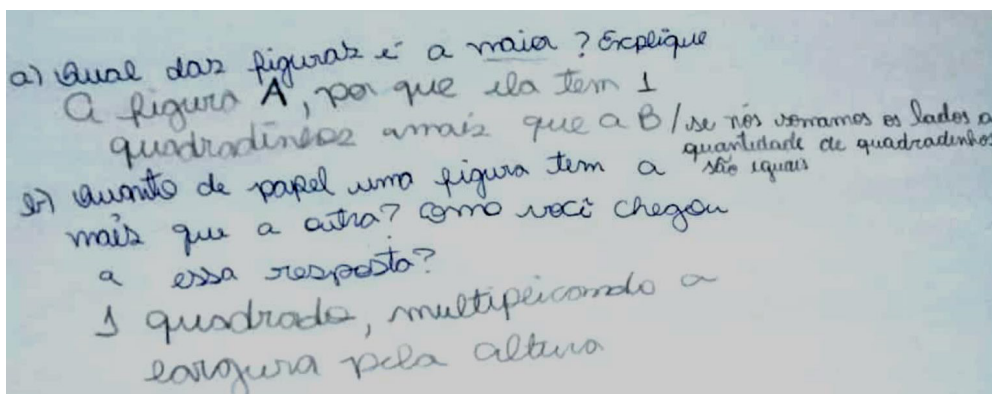 a) Qual das figuras é a maior? Explique
A figura A, por que ela tem 1
quadradinhos amais que a B / se nós somamos os lados a
quantidade de quadradinhos
são iguais
b) Quanto de papel uma figura tem a
mais que a outra? Como você chegou
a essa resposta?
1 quadrado, multiplicando a
largura pela altura